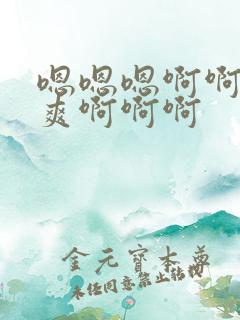 嗯嗯嗯啊啊
爽啊啊啊
金元宝本尊
未经同意禁止转载